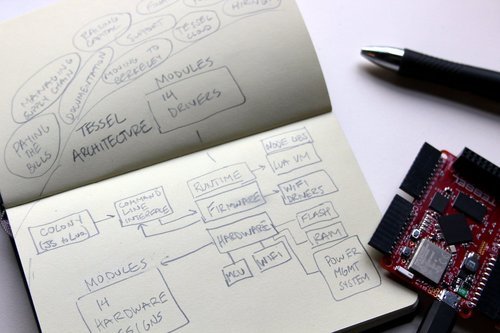 RAISING
CAPITAL
SUPPORT
TESSEL
CLOUD
MANAGING
SUPPLY CHAIN
DOCUMENTATION
MOVING TO
BERKELEY
PAYING
THE
BILLS
MODULES
14
DRIVERS
TESSEL
ARCHITECTURE
NODE LIBS
LUA VM
RUNTIME
COLONY
(JS to Lua)
COMMAND
LINE
INTERFACE
FIRMWARE
WIFI
DRIVERS
HARDWARE
FLASH
RAM
MCU
WIFI
POWER
MGMT
SYSTEM
MODULES
14
HARDWARE
DESIGNS